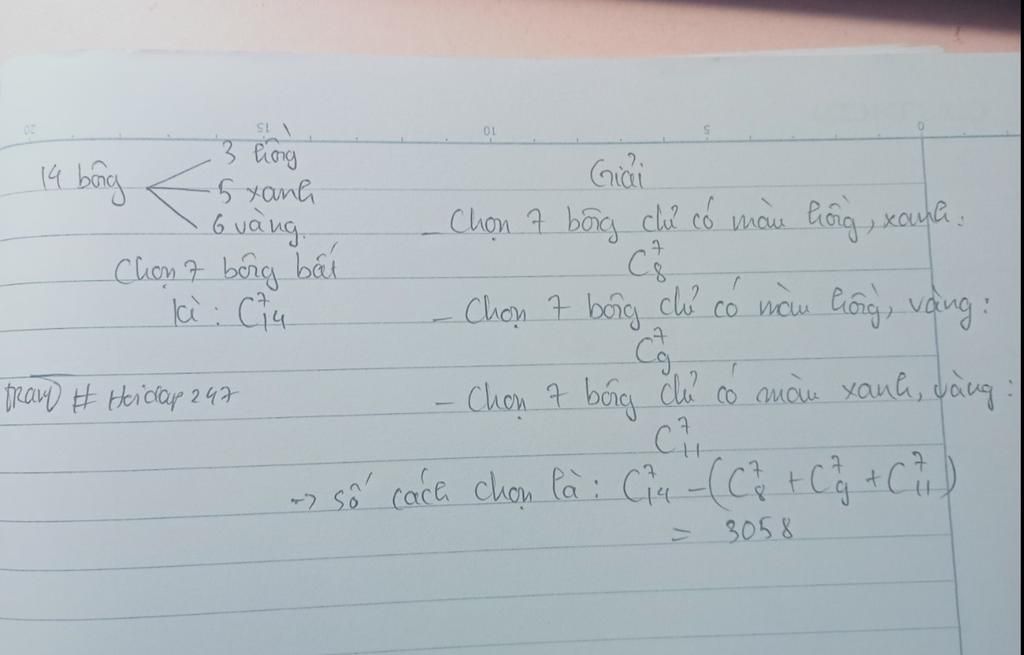 20 15 10 5 0
14 bông
3 hồng
5 xanh
6 vàng.
Chọn 7 bông bất
kì : C⁷₁₄
trang # Hoidap247
Giải
– Chọn 7 bông chỉ có màu hồng, xanh:
C⁷₈
– Chọn 7 bông chỉ có màu hồng, vàng:
C⁷₉
– Chọn 7 bông chỉ có màu xanh, vàng:
C⁷₁₁
→ số cách chọn là: C⁷₁₄ – (C⁷₈ + C⁷₉ + C⁷₁₁)
= 3058